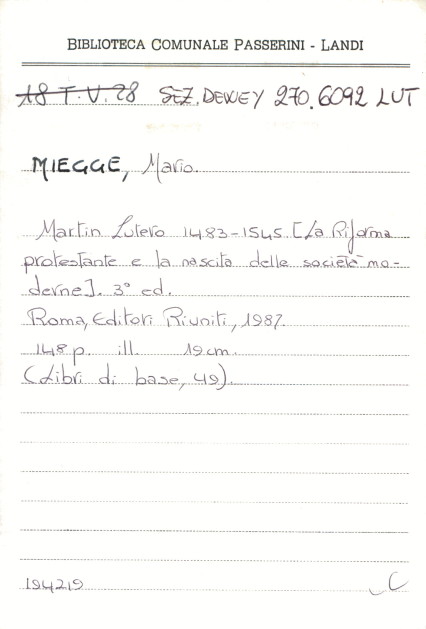 BIBLIOTECA COMUNALE PASSERINI - LANDI
18 T. V. 28 SEZ. DEWEY 270.6092 LUT
MIEGGE, Mario.
Martin Lutero 1483-1545 [La Riforma
protestante e la nascita delle società mo-
derne]. 3° ed.
Roma, Editori Riuniti, 1987.
148 p. ill. 19 cm.
(Libri di base, 49).
194219 C